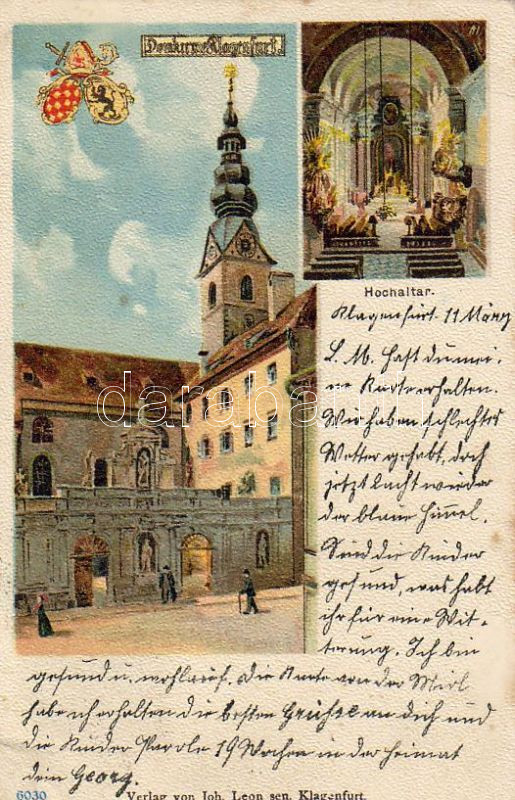 Domkirche Klagenfurt.
Hochaltar.
Klagenfurt. 11 März
L. M. Hast du mei-
ne Karte erhalten.
Wir haben schlechtes
Wetter gehabt, doch
jetzt lacht wieder
der blaue Himmel.
Sind die Kinder
gesund, was habt
ihr für eine Wit-
terung. Ich bin
gesund u. wohlauf. Die Karte von der
habe ich erhalten die besten Grüße an dich und
die Kinder Parole 19 Wochen in der Heimat
dein Georg.
6030
Verlag von Joh. Leon sen. Klagenfurt.
darabanth